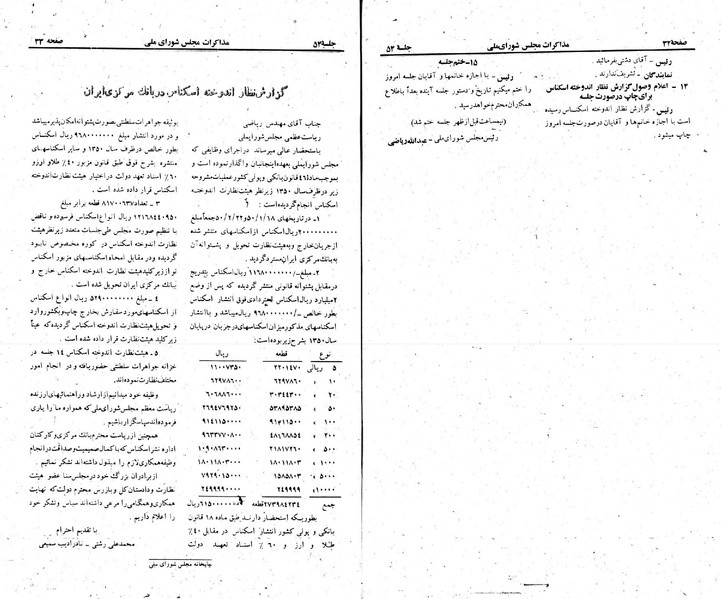 صفحه ۳۲
مذاکرات مجلس شورای ملی
جلسه ۵۳
رئیس ـ آقای دشتی بفرمائید.
نمایندگان ـ تشریف ندارند.
۱۴ ـ اعلام وصول گزارش نظار اندوخته اسکناس
برای چاپ در صورت جلسه
رئیس ـ گزارش نظار اندوخته اسکناس رسیده
است با اجازه خانم‌ها و آقایان در صورت جلسه امروز
چاپ میشود.
۱۵ ـ ختم جلسه
رئیس ـ با اجازه خانمها و آقایان جلسه امروز
را ختم میکنیم تاریخ و دستور جلسه آینده بعداً باطلاع
همکاران محترم خواهد رسید.
(نیمساعت قبل از ظهر جلسه ختم شد)
رئیس مجلس شورای ملی ـ عبدالله ریاضی
جلسه ۵۳
مذاکرات مجلس شورای ملی
صفحه ۳۳
گزارش نظار اندوخته اسکناس در بانک مرکزی ایران
جناب آقای مهندس ریاضی
ریاست عظمی مجلس شورایملی
باستحضار عالی میرساند در اجرای وظایفی که
مجلس شورایملی بعهده اینجانبان واگذار نموده است و
بموجب ماده ۴۶ قانون بانکی و پولی کشور عملیات مشروحه
زیر در ظرف سال ۱۳۵۰ زیر نظر هیئت نظارت اندوخته
اسکناس انجام گردیده است:
۱ـ در تاریخهای ۵۰/۱/۱۸ و ۵۰/۲/۲۲ جمعاً مبلغ
۲۰۰۰۰۰۰۰۰۰ ریال اسکناس از اسکناسهای منتشر شده
از جریان خارج و به هیئت نظارت تحویل و پشتوانه آن
به بانک مرکزی ایران مسترد گردید.
۲ـ مبلغ ـ/۱۱۶۸۰۰۰۰۰۰۰ ریال اسکناس بتدریج
در مقابل پشتوانه قانونی منتشر گردیده که پس از وضع
۲ میلیارد ریال اسکناس استردادی فوق انتشار اسکناس
بطور خالص ـ/۹۶۸۰۰۰۰۰۰۰ ریال میباشد و با انتشار
اسکناسهای مذکور میزان اسکناسهای در جریان در پایان
سال ۱۳۵۰ بشرح زیر بوده است:
نوع قطعه ریال
۵ ریالی ۲۲۰۱۴۷۰ ۱۱۰۰۷۳۵۰
۱۰ » ۶۲۹۷۸۶۰ ۶۲۹۷۸۶۰۰
۲۰ » ۳۰۳۴۴۳۰۰ ۶۰۶۸۸۶۰۰۰
۵۰ » ۵۳۸۹۵۳۸۵ ۲۶۹۴۷۶۹۲۵۰
۱۰۰ » ۹۱۴۱۱۵۰۰ ۹۱۴۱۱۵۰۰۰۰
۲۰۰ » ۴۸۱۶۸۸۵۴ ۹۶۳۳۷۷۰۸۰۰
۵۰۰ » ۲۱۸۱۷۲۶۰ ۱۰۹۰۸۶۳۰۰۰۰
۱۰۰۰ » ۱۸۰۱۱۸۰۳ ۱۸۰۱۱۸۰۳۰۰۰
۵۰۰۰ » ۱۵۸۵۸۰۳ ۷۹۲۹۰۱۵۰۰۰
۱۰۰۰۰ » ۲۴۹۹۹۹ ۲۴۹۹۹۹۰۰۰۰
جمع ۲۷۳۹۸۴۲۳۴ قطعه ۶۱۵۰۰۰۰۰۰۰۰ ریال
بطوریکه استحضار دارند طبق ماده ۱۸ قانون
بانکی و پولی کشور انتشار اسکناس در مقابل ۴۰٪
طلا و ارز و ۶۰٪ اسناد تعهد دولت
بوثیقه جواهر سلطنتی بصورت پشتوانه امکان پذیر میباشد
و در مورد انتشار مبلغ ۹۶۸۰۰۰۰۰۰۰ ریال اسکناس
بطور خالص در ظرف سال ۱۳۵۰ و سایر اسکناسهای
منتشره بشرح فوق طبق قانون مزبور ۴۰٪ طلا و ارز و
۶۰٪ اسناد تعهد دولت در اختیار هیئت نظارت اندوخته
اسکناس قرار داده شده است.
۳ ـ تعداد ۸۱۷۰۰۶۳۷ قطعه برابر مبلغ
۱۲۱۶۸۴۴۰۹۵۰ ریال انواع اسکناس فرسوده و ناقص
با تنظیم صورت مجلس طی جلسات متعدد زیر نظر هیئت
نظارت اندوخته اسکناس در کوره مخصوص نابود
گردیده و در مقابل امحاء اسکناسهای مزبور اسکناس
نو از زیر کلید هیئت نظارت اندوخته اسکناس خارج و
ببانک مرکزی ایران تحویل شده است.
۴ ـ مبلغ ۵۲۹۰۰۰۰۰۰۰۰ ریال انواع اسکناس
از اسکناسهای مورد سفارش بخارج چاپ و بکشور وارد
و تحویل هیئت نظارت اندوخته اسکناس گردیده که عیناً
زیر کلید هیئت نظارت قرار داده شده است.
۵ ـ هیئت نظارت اندوخته اسکناس ۱۴ جلسه در
خزانه جواهرات سلطنتی حضور یافته و در انجام امور
مختلف نظارت نموده‌اند.
وظیفه خود میدانیم از ارشاد و راهنمائیهای ارزنده
ریاست معظم مجلس شورای ملی که همواره ما را یاری
فرموده‌اند سپاسگزار باشیم.
همچنین از ریاست محترم بانک مرکزی و کارکنان
اداره نشر اسکناس که با کمال صمیمیت و صداقت در انجام
وظیفه همکاری لازم را مبذول داشته‌اند تشکر نمائیم.
از برادران بزرگ خود در مجلس سنا عضو هیئت
نظارت و دادستان کل و بازرس محترم دولت که نهایت
همکاری و همگامی را مرعی داشته‌اند سپاس و تشکر خود
را اعلام داریم.
با تقدیم احترام
محمدعلی رشتی ـ نادر ادیب سمیعی
چاپخانه مجلس شورای ملی